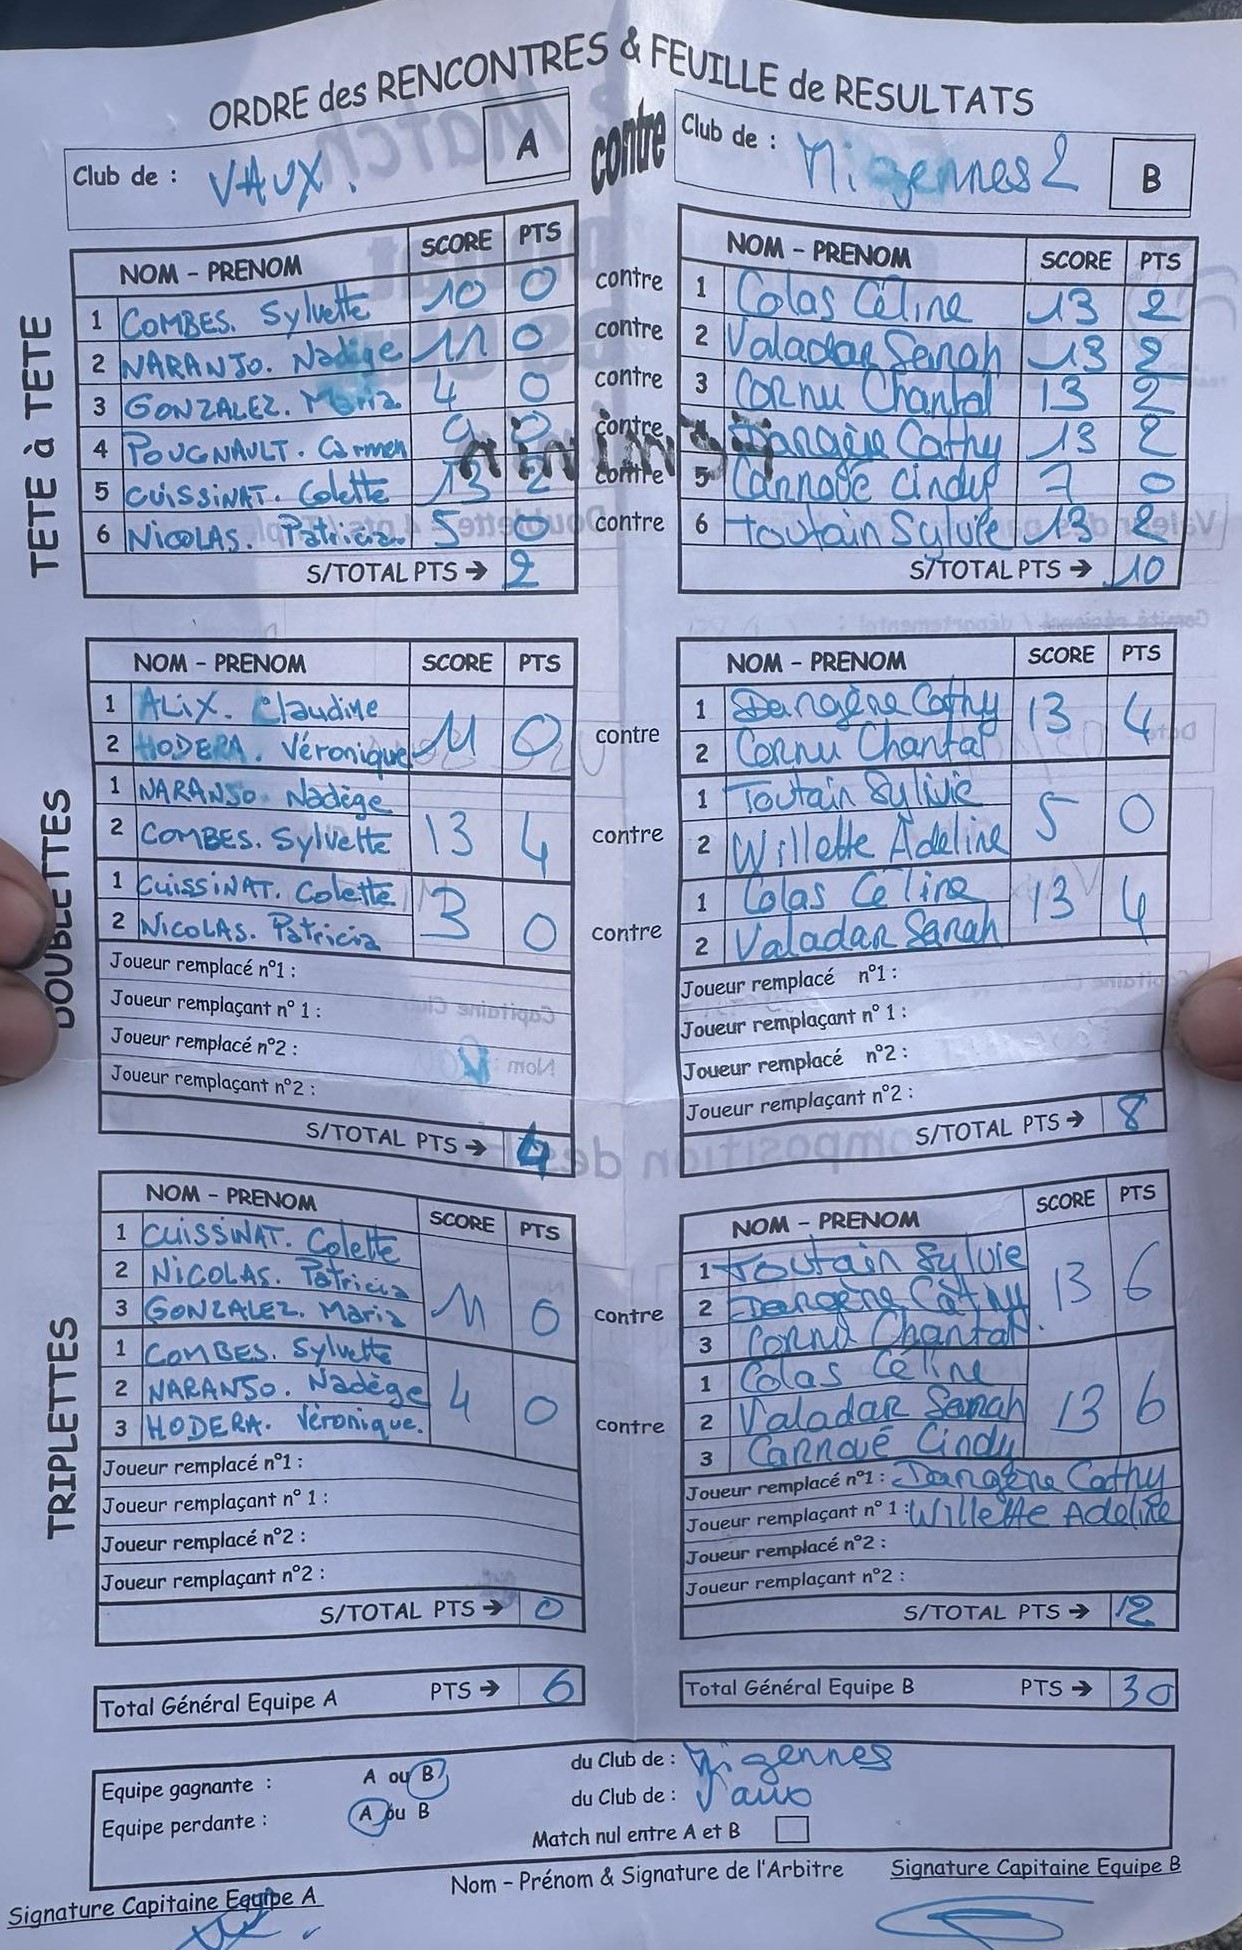 ORDRE des RENCONTRES & FEUILLE de RESULTATS
Club de : VAUX. A
contre
Club de : Migennes 2 B
TETE à TETE
NOM - PRENOM SCORE PTS
1 COMBES. Sylvette 10 0
2 NARANJO. Nadège 11 0
3 GONZALEZ. Maria 4 0
4 POUGNAULT. Carmen 9 0
5 CUISSINAT. Colette 13 2
6 NICOLAS. Patricia 5 0
S/TOTAL PTS → 2
contre
contre
contre
contre
contre
contre
NOM - PRENOM SCORE PTS
1 Colas Céline 13 2
2 Valadar Sarah 13 2
3 Cornu Chantal 13 2
4 Dangène Cathy 13 2
5 Carroué Cindy 7 0
6 Toutain Sylvie 13 2
S/TOTAL PTS → 10
DOUBLETTES
NOM - PRENOM SCORE PTS
1 ALIX. Claudine
2 HODERA. Véronique 11 0
1 NARANJO. Nadège
2 COMBES. Sylvette 13 4
1 CUISSINAT. Colette
2 NICOLAS. Patricia 3 0
Joueur remplacé n°1 :
Joueur remplaçant n° 1 :
Joueur remplacé n°2 :
Joueur remplaçant n°2 :
S/TOTAL PTS → 4
contre
contre
contre
NOM - PRENOM SCORE PTS
1 Dangène Cathy
2 Cornu Chantal 13 4
1 Toutain Sylivie
2 Willette Adeline 5 0
1 Colas Céline
2 Valadar Sarah 13 4
Joueur remplacé n°1 :
Joueur remplaçant n° 1 :
Joueur remplacé n°2 :
Joueur remplaçant n°2 :
S/TOTAL PTS → 8
TRIPLETTES
NOM - PRENOM SCORE PTS
1 CUISSINAT. Colette
2 NICOLAS. Patricia
3 GONZALEZ. Maria 11 0
1 COMBES. Sylvette
2 NARANJO. Nadège
3 HODERA. Véronique. 4 0
Joueur remplacé n°1 :
Joueur remplaçant n° 1 :
Joueur remplacé n°2 :
Joueur remplaçant n°2 :
S/TOTAL PTS → 0
contre
contre
NOM - PRENOM SCORE PTS
1 Toutain Sylvie
2 Dangène Cathy
3 Cornu Chantal. 13 6
1 Colas Céline
2 Valadar Sarah
3 Carroué Cindy 13 6
Joueur remplacé n°1 : Dangène Cathy
Joueur remplaçant n° 1 : Willette Adeline
Joueur remplacé n°2 :
Joueur remplaçant n°2 :
S/TOTAL PTS → 12
Total Général Equipe A PTS → 6
Total Général Equipe B PTS → 30
Equipe gagnante : A ou B du Club de : Migennes
Equipe perdante : A ou B du Club de : Vaux
Match nul entre A et B
Signature Capitaine Equipe A
Nom - Prénom & Signature de l'Arbitre
Signature Capitaine Equipe B